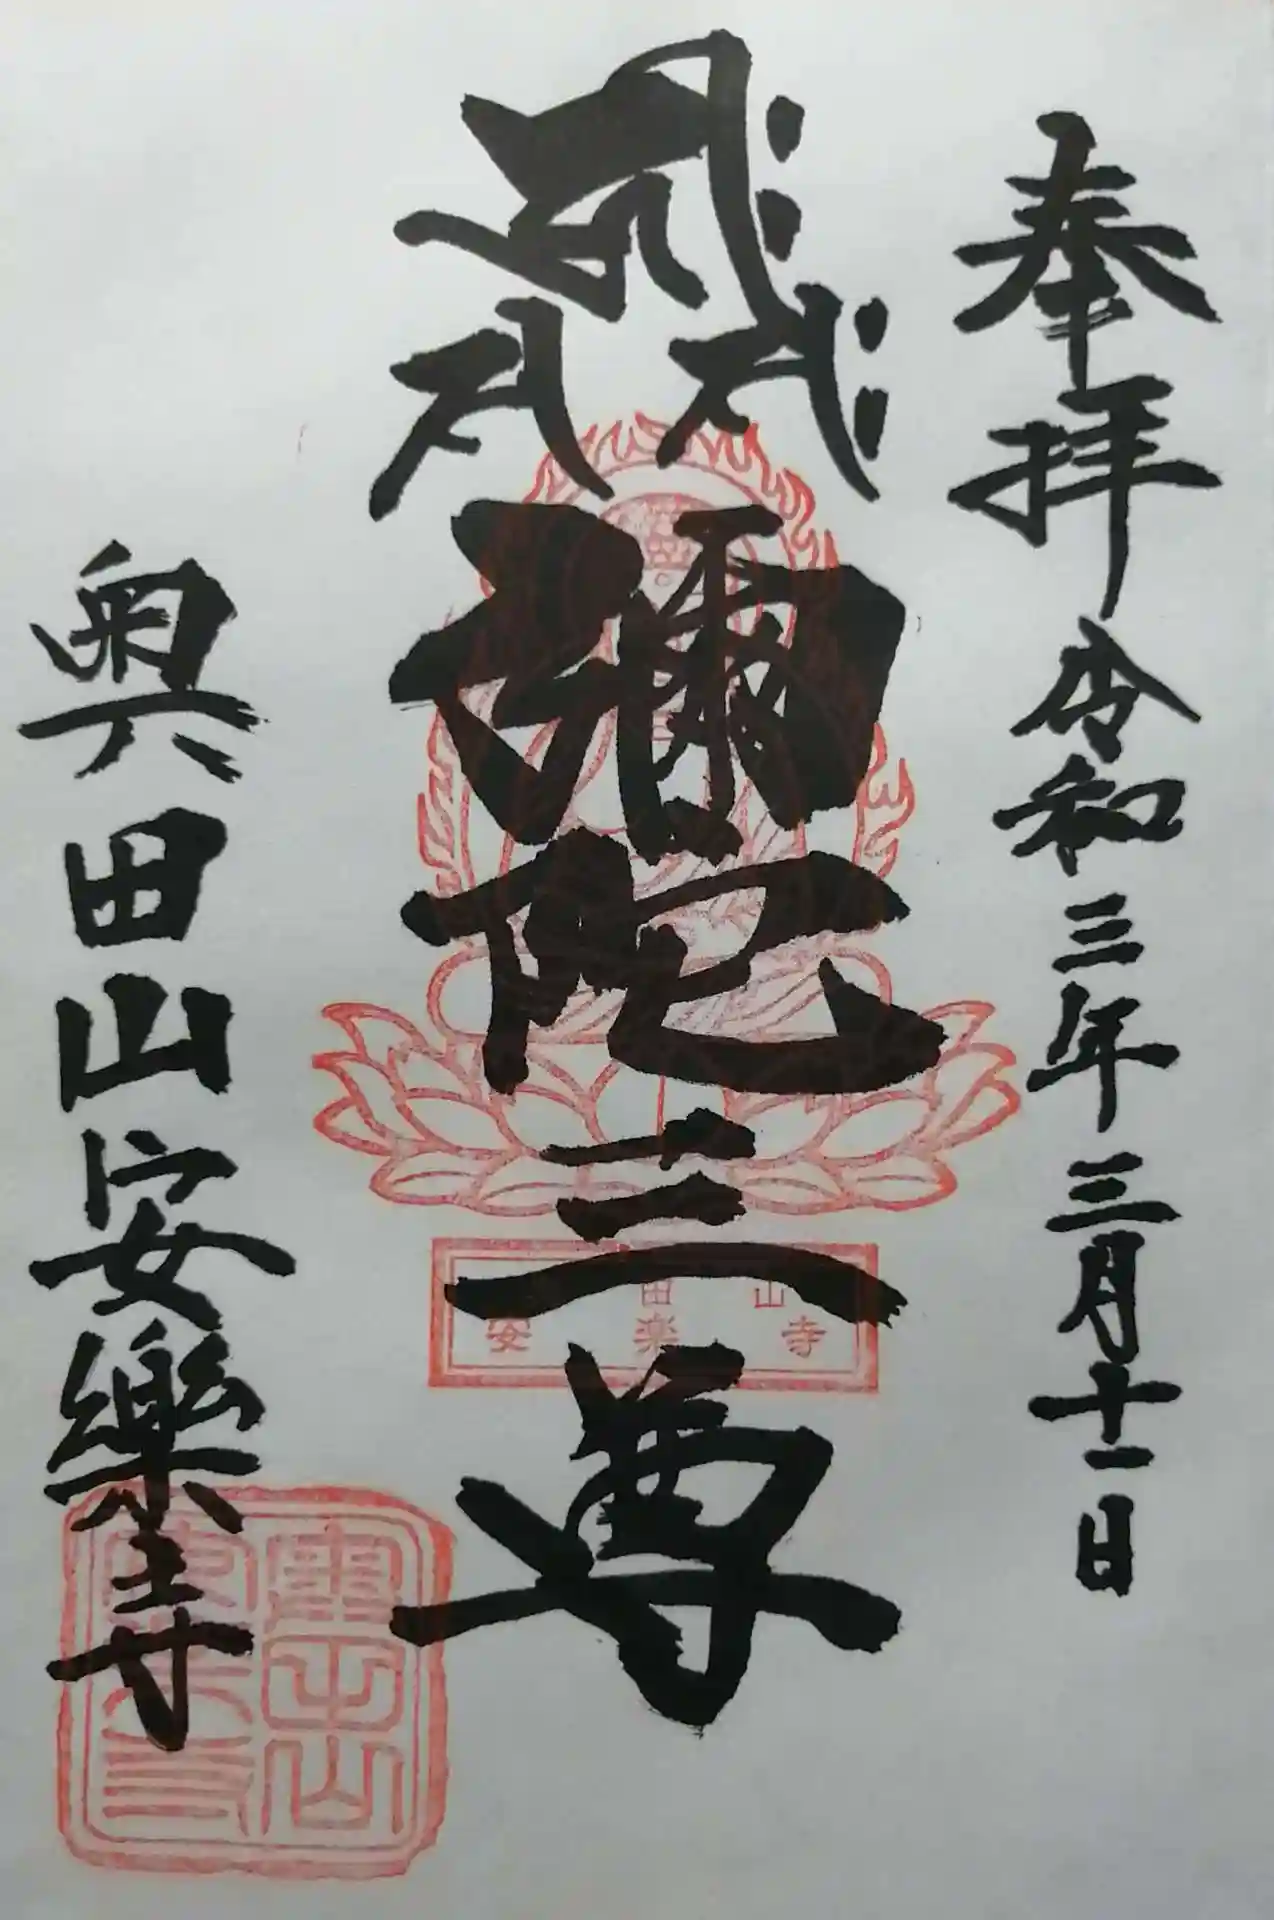 奉拝 令和三年三月十一日
𑖮𑖿𑖨𑖱𑖾
𑖭𑖾 𑖭
彌陀三尊
田山
安楽寺
奥田山安樂寺